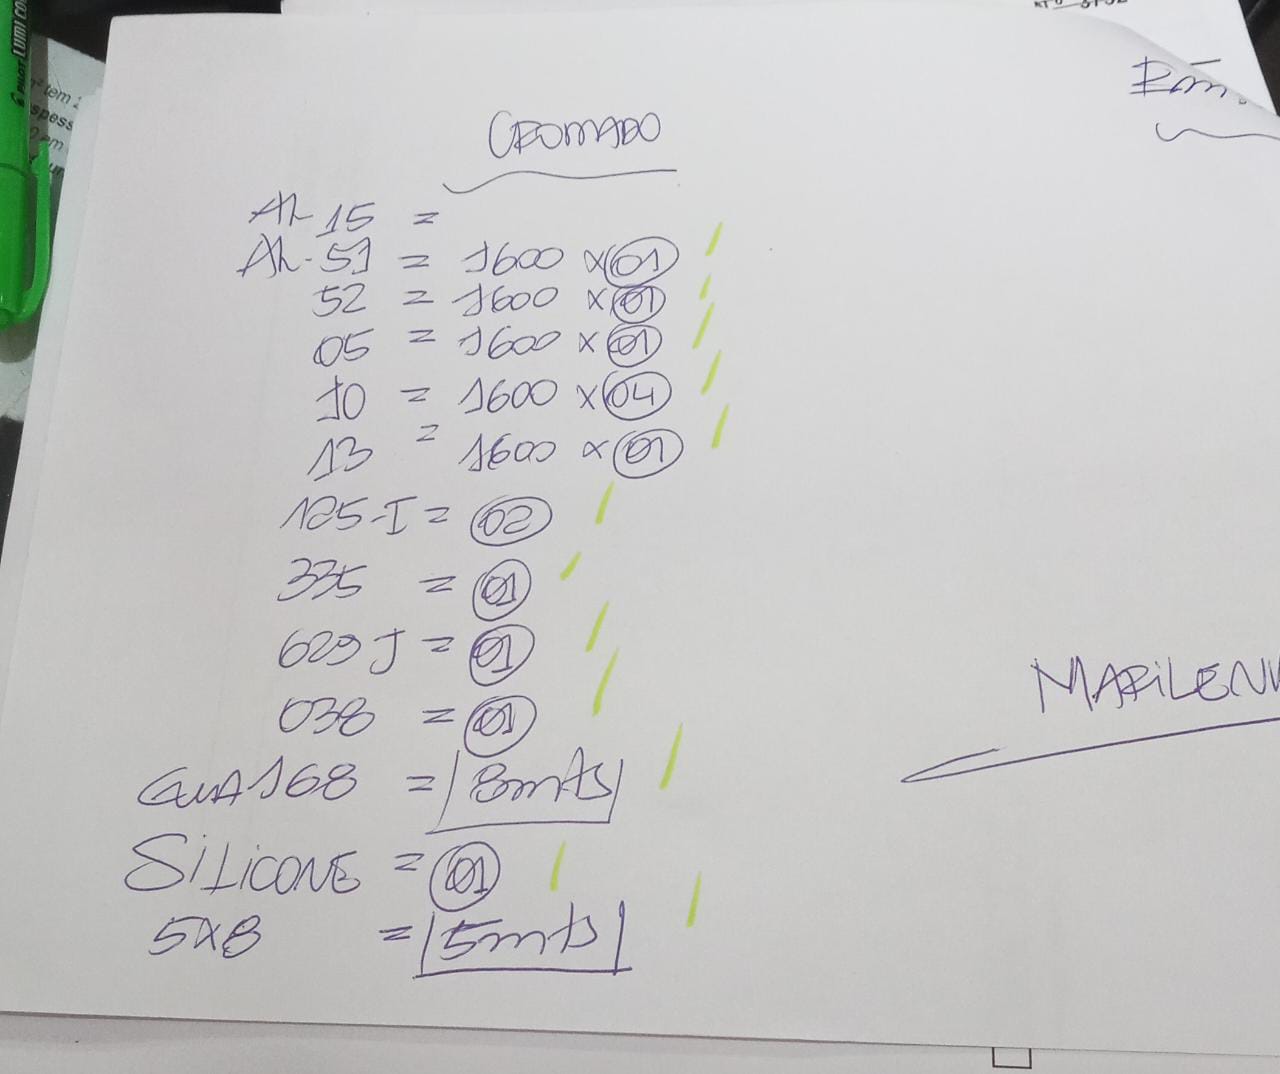 CROMADO
AL-15 =
AL-51 = 1600 x 01
52 = 1600 x 01
05 = 1600 x 01
10 = 1600 x 04
13 = 1600 x 01
125-I = 02
335 = 01
629 J = 01
038 = 01
GUA 168 = 8mts
SiLiCONE = 01
5x8 = 5mts
MARiLEN
PILOT LUMI CO
m² tem